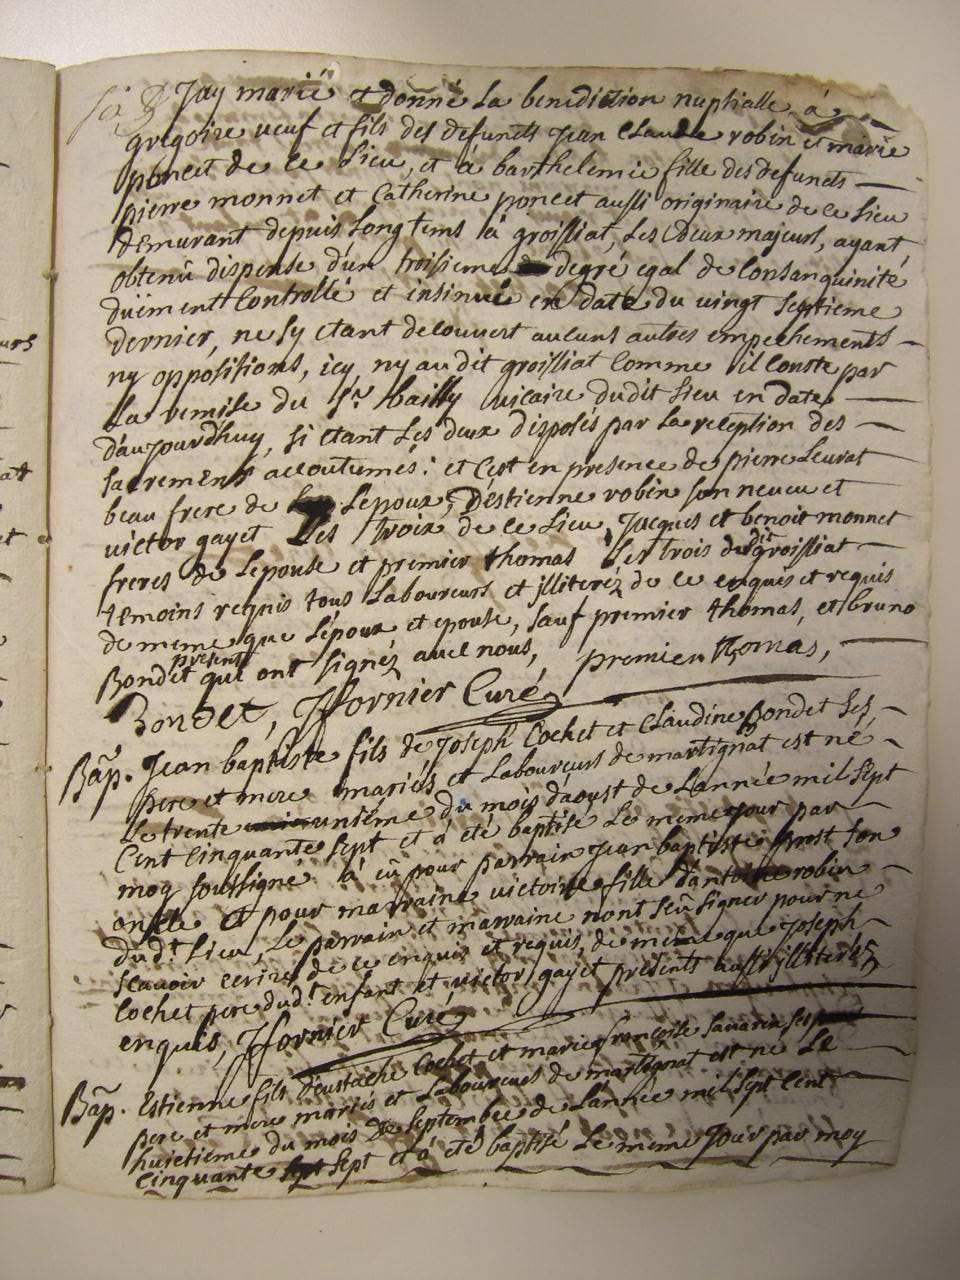 Jay marié et donné la benediction nuptialle à
gregoire veuf et fils des defuncts Jean Claude robin et marie
poncet de ce Lieu, et à barthelemie fille des defuncts
pierre monnet et Catherine poncet aussi originaire de ce Lieu
demurant depuis Longtems à groissiat, Les deux majeurs, ayant
obtenû dispense d'un troisieme degré egal de Consanguinité
duëment Controllé et insinué en date du vingt septieme
dernier, ne sy etant decouvert aucuns autres empechements
ny oppositions, icy ny audit groissiat Comme il Conste par
La remise du Sr. bailly vicaire dudit Lieu en date
d'aujourdhuy, si etant Les deux disposés par La reception des
sacrements accoutumés: et C'est en presence de pierre Leurat
beau frere de Lepoux, D'estienne robin son neveu et
victor gayet Les troix de ce Lieu, Jacques et benoit monnet
freres de Lepouse et premier thomas Les trois dudit groissiat
temoins requis tous Laboureurs et jlliterez de ce enquis et requis
de meme que Lépoux et epouse, sauf premier thomas, et bruno
Bondet presents qui ont signéz avec nous, premier thomas,
Bondet, Jffornier Curé
Bap. Jean baptiste fils de Joseph Cochet et Claudine Bondet Ses
pere et mere mariés et Laboureurs de martignat est né
Le trente unsième du mois d'aoust de L'année mil sept
Cent Cinquante sept et a eté baptisé Le meme jour par
moy soussigné à eû pour parrain Jean baptiste prost son
oncle et pour marraine victoire fille d'antoine robin
dud.t Lieu, Le parrain et marraine n'ont sçû signer pour ne
scavoir ecrire de ce enquis et requis, de meme que Joseph
Cochet pere dud.t enfant et victor gayet presents aussi jlliteréz
enquis, Jffornier Curé
Bap. Estienne fils d'eustache Cochet et marie françoise savarin ses
pere et mere mariés et Laboureurs de martignat est né Le
huictieme du mois de septembre de L'année mil sept Cent
Cinquante sept et à eté baptisé Le meme Jour par moy